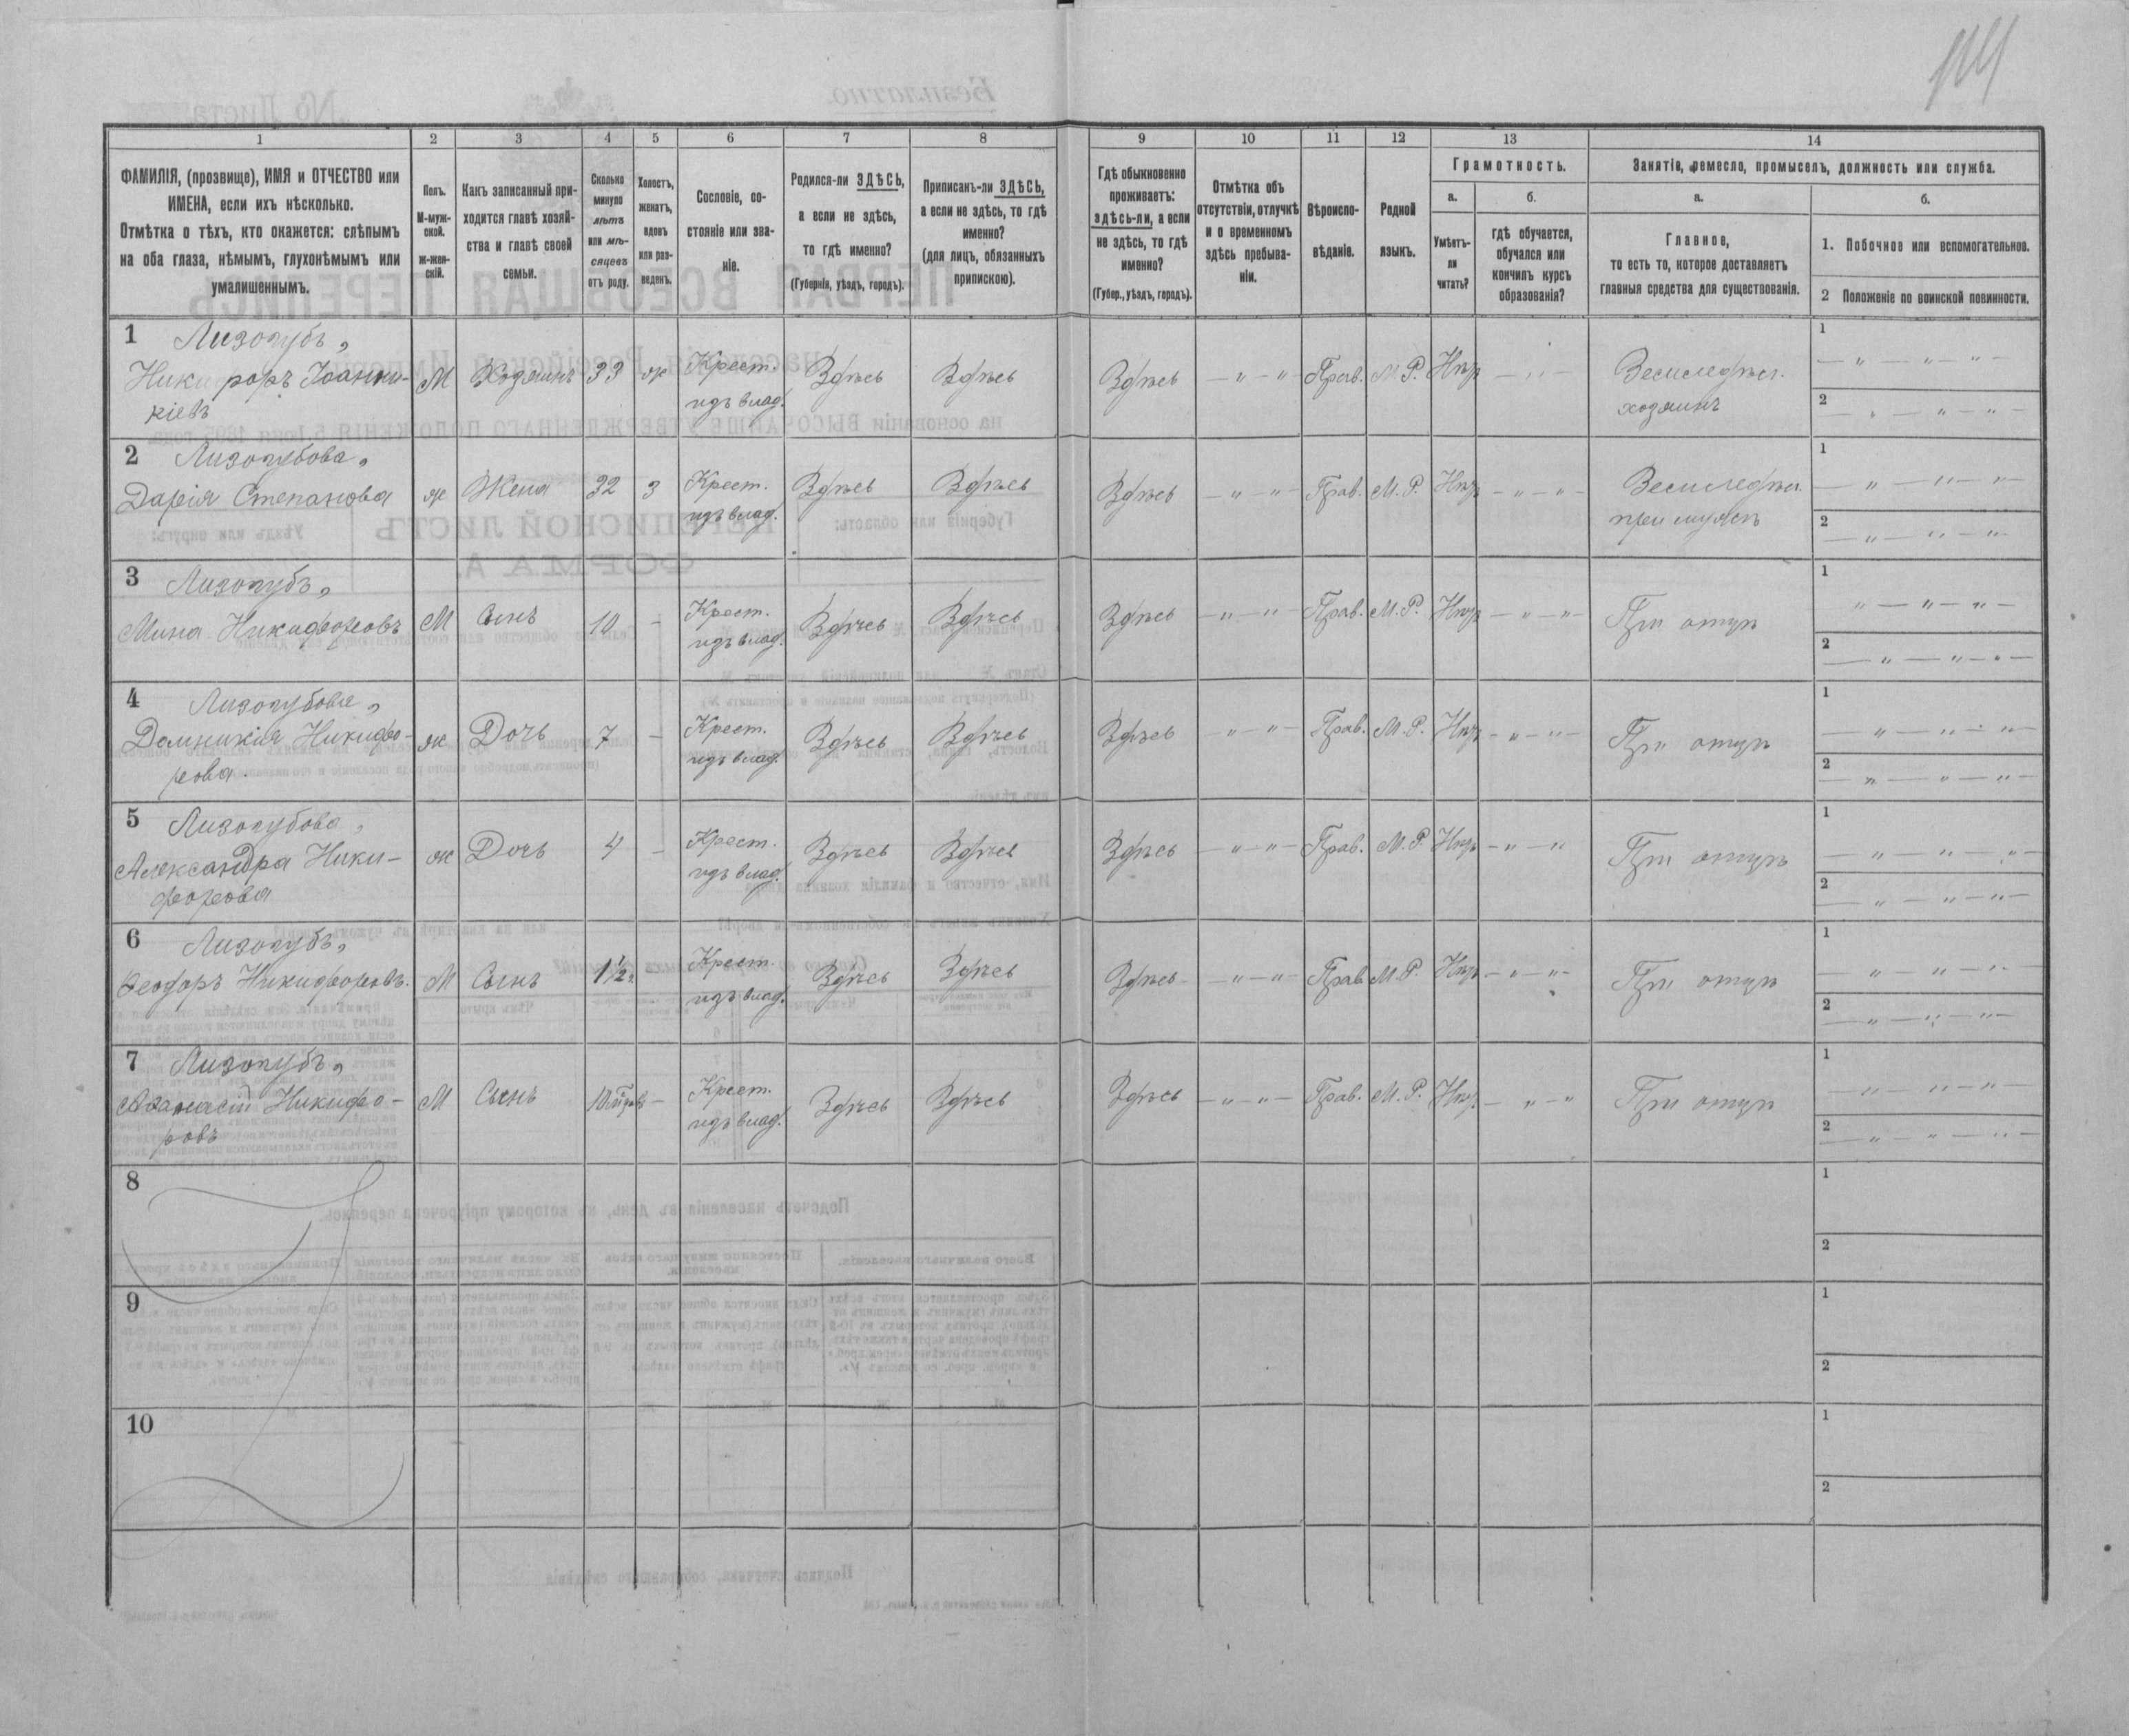 114
1 2 3 4 5 6 7 8 9 10 11 12 13 14
ФАМИЛІЯ, (прозвище), ИМЯ и ОТЧЕСТВО или
ИМЕНА, если ихъ нѣсколько.
Отмѣтка о тѣхъ, кто окажется: слѣпымъ
на оба глаза, нѣмымъ, глухонѣмымъ или
умалишеннымъ.
Полъ.
М-муж-
ской.
Ж-жен-
скій.
Какъ записанный при-
ходится главѣ хозяй-
ства и главѣ своей
семьи.
Сколько
минуло
лѣтъ
или мѣ-
сяцевъ
отъ роду.
Холостъ,
женатъ,
вдовъ
или раз-
веденъ.
Сословіе, со-
стояніе или зва-
ніе.
Родился-ли ЗДѢСЬ,
а если не здѣсь,
то гдѣ именно?
(Губернія, уѣздъ, городъ).
Приписанъ-ли ЗДѢСЬ,
а если не здѣсь, то гдѣ
именно?
(для лицъ, обязанныхъ
припискою).
Гдѣ обыкновенно
проживаетъ:
здѣсь-ли, а если
не здѣсь, то гдѣ
именно?
(Губер., уѣздъ, городъ).
Отмѣтка объ
отсутствіи, отлучкѣ
и о временномъ
здѣсь пребыва-
ніи.
Вѣроиспо-
вѣданіе.
Родной
языкъ.
Грамотность.
а.
Умѣетъ-
ли
читать?
б.
гдѣ обучается,
обучался или
кончилъ курсъ
образованія?
Занятіе, ремесло, промыселъ, должность или служба.
а.
Главное,
то есть то, которое доставляетъ
главныя средства для существованія.
б.
1. Побочное или вспомогательное.
2 Положеніе по воинской повинности.
1 Лизогубъ,
Никифоръ Іоанни-
кіевъ
М Хозяинъ 33 ж Крест.
изъ влад. Здѣсь Здѣсь Здѣсь — " — " Прав. М.Р. Нѣтъ — " — Земледѣл.
хозяинъ
1 — " — " — " —
2 — " — " — " —
2 Лизогубова,
Дарія Степанова
ж Жена 32 З Крест.
изъ влад. Здѣсь Здѣсь Здѣсь — " — " — Прав. М.Р. Нѣтъ — " — " — Земледѣл.
при мужѣ
1 — " — " — " —
2 — " — " — " —
3 Лизогубъ,
Мина Никифоровъ
М Сынъ 10 — Крест.
изъ влад. Здѣсь Здѣсь Здѣсь — " — " — Прав. М.Р. Нѣтъ — " — " — При отцѣ
1 " — " — " —
2 — " — " — " —
4 Лизогубова,
Домникія Никифо-
рова
ж Дочь 7 — Крест.
изъ влад. Здѣсь Здѣсь Здѣсь " — " — Прав. М.Р. Нѣтъ — " — " — При отцѣ
1 — " — " — " —
2 — " — " — " —
5 Лизогубова,
Александра Ники-
форова
ж Дочь 4 — Крест.
изъ влад. Здѣсь Здѣсь Здѣсь — " — " — Прав. М.Р. Нѣтъ — " — " При отцѣ
1 — " — " — " —
2 — " — " — " —
6 Лизогубъ,
Феодоръ Никифоровъ.
М Сынъ 1 1/2 г. Крест.
изъ влад. Здѣсь Здѣсь Здѣсь — " — " — Прав. М.Р. Нѣтъ — " — " — При отцѣ
1 " — " — " —
2 — " — " — " —
7 Лизогубъ,
Аѳанасій Никифо-
ровъ
М Сынъ — Крест.
изъ влад. Здѣсь Здѣсь Здѣсь — " — " — Прав. М.Р. Нѣтъ — " — " При отцѣ
1 — " — " — " —
2 — " — " — " —
8 1
2
9 1
2
10 1
2